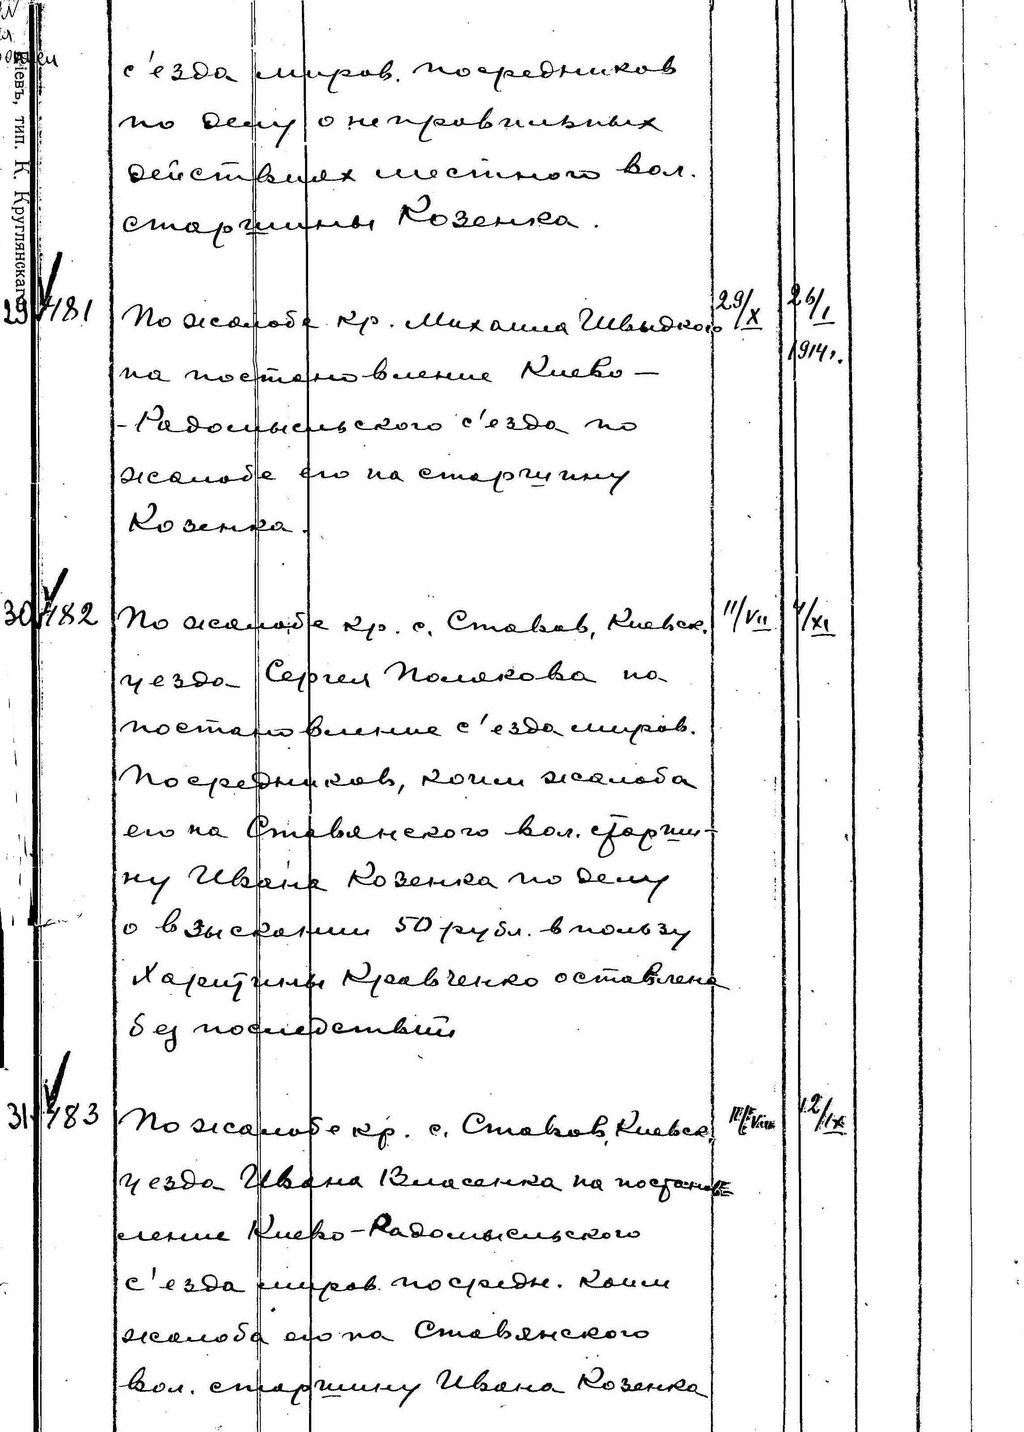 с'езда миров. посредников
по делу о неправильных
действиях местного вол.
старшины Козенка.
29 481 По жалобе кр. Михаила Швыдкого 29/X 26/I
на постановление Киево- 1914г.
-Радомысльского с'езда по
жалобе его на старшину
Козенка.
30 482 По жалобе кр. с. Ставов, Киевск. 11/VII 4/XI
уезда Сергея Полякова на
постановление с'езда миров.
Посредников, коим жалоба
его на Ставянского вол. старши-
ну Ивана Козенка по делу
о взыскании 50 рубл. в пользу
Харитины Кравченко оставлена
без последствий
31 483 По жалобе кр. с. Ставов, Киевск. 12/IX
уезда Ивана Власенка на постанов-
ление Киево-Радомысльского
с'езда миров. посредн. коим
жалоба его на Ставянского
вол. старшину Ивана Козенка
іевъ, тип. К. Круглянскаго